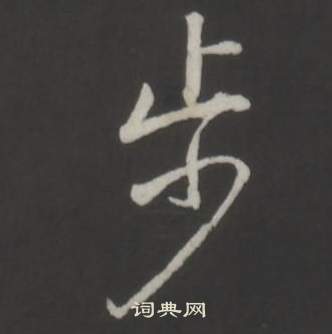 步
词典网